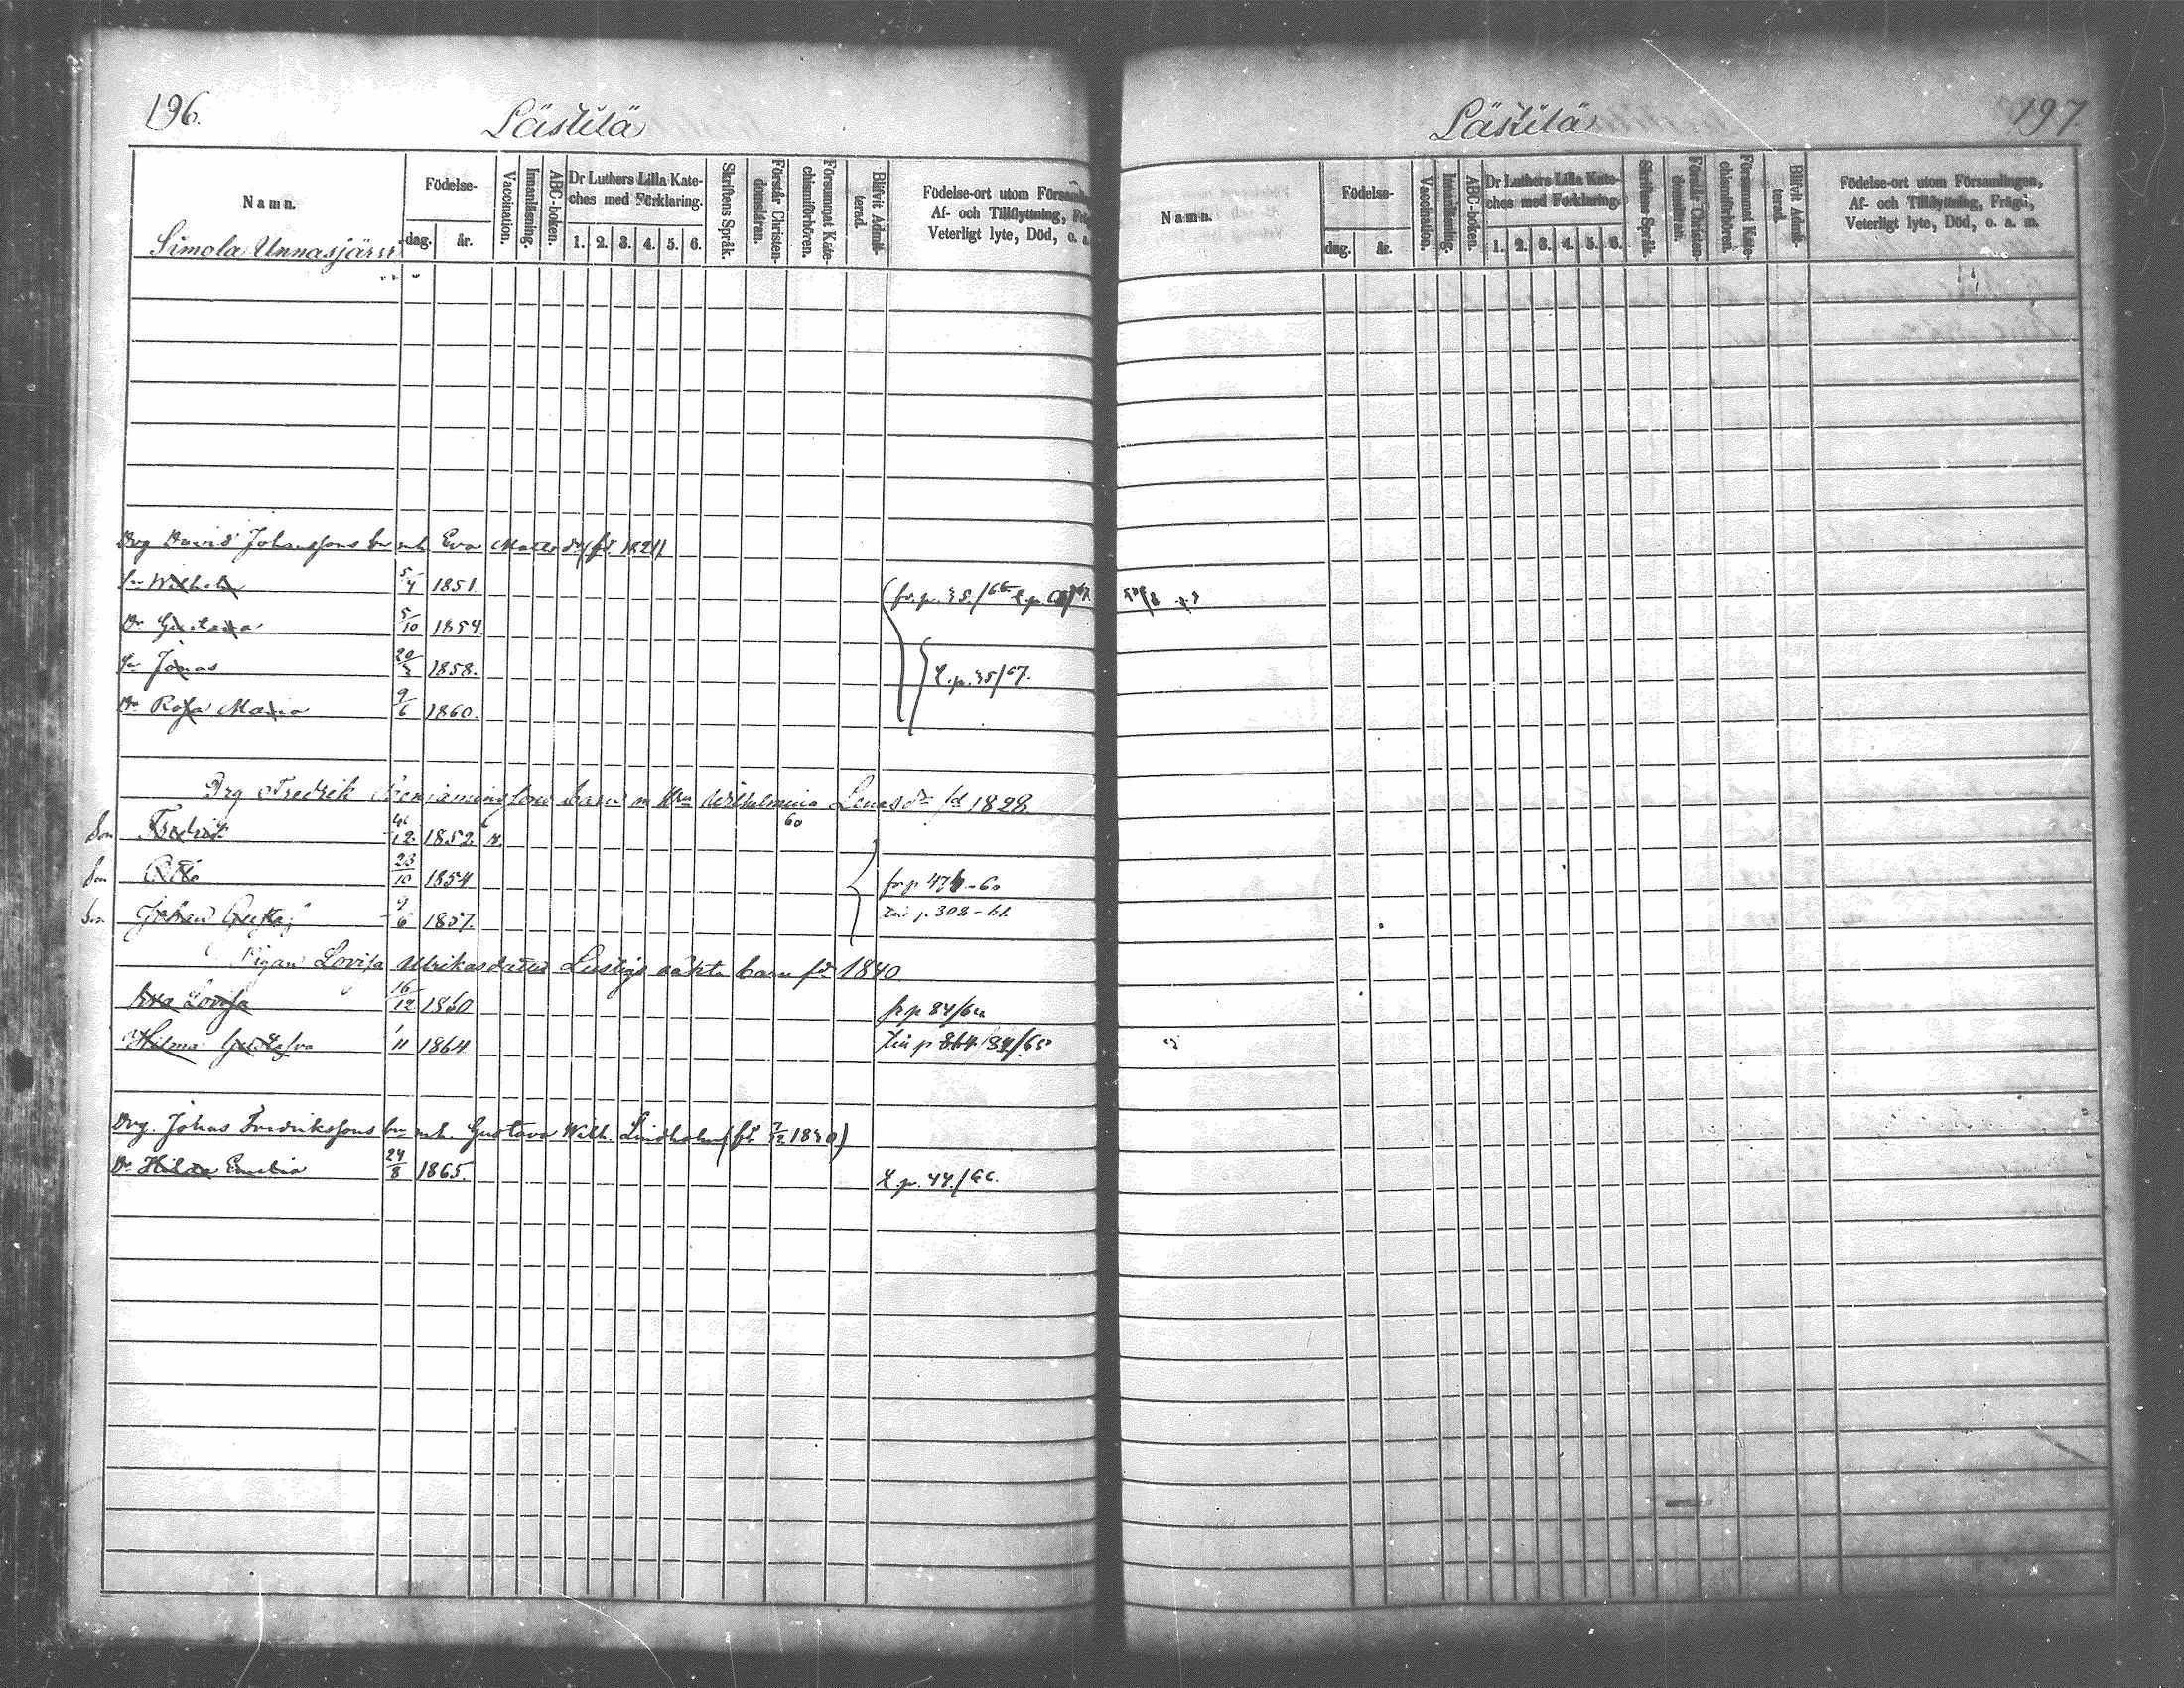 196.
Lästilä
Namn.
Födelse-
dag. år.
Vaccination.
Innanläsning.
ABC-boken.
Dr Luthers Lilla Kate-
ches med Förklaring.
1. 2. 3. 4. 5. 6.
Skriftens Språk.
Förstår Christen-
domsläran.
Försummat Kate-
chismiförhören.
Blifvit Admit-
terad.
Födelse-ort utom Församl
Af- och Tillflyttning, Fr
Veterligt lyte, Död, o. a.
Simola Unnasjärvi
Drg David Johanssons bn mh. Eva Mattsdr (fd. 1821)
Sn Wilhelm 5/4 1851. fr. p. 35/66
Dr Gustava 5/10 1854
Sn Jonas 20/3 1858. t. p. 35/67.
Dr Rosa Maria 9/6 1860.
Drg Fredrik Benjaminssons barn m Hu Wilhelmina Lenasdr fd 1828.
60
Son Fredrik 4/12 1852 v.
Son Otto 23/10 1854 fr p 474-60
Son Johan Gustaf 9/6 1857. till p. 308-61.
Pigan Lovisa Ulrikasdotter Lustigs oäkta barn fd 1840
Eva Lovisa 16/12 1860 fr p 84/64
Hilma Gustafva 1/11 1864 till p 84/65
Drg. Johas Fredrikssons bn mh. Gustava Wilh. Lindholm (fd 7/12 1840)
Dr Hilda Emilia 24/8 1865. t. p. 44./66.
Lästilä
197.
Namn.
Födelse-
dag. år.
Vaccination.
Innanläsning.
ABC-boken.
Dr Luthers Lilla Kate-
ches med Förklaring.
1. 2. 3. 4. 5. 6.
Skriftens Språk.
Förstår Christen-
domsläran.
Försummat Kate-
chismiförhören.
Blifvit Admit-
terad.
Födelse-ort utom Församlingen,
Af- och Tillflyttning, Frägd,
Veterligt lyte, Död, o. a. m.